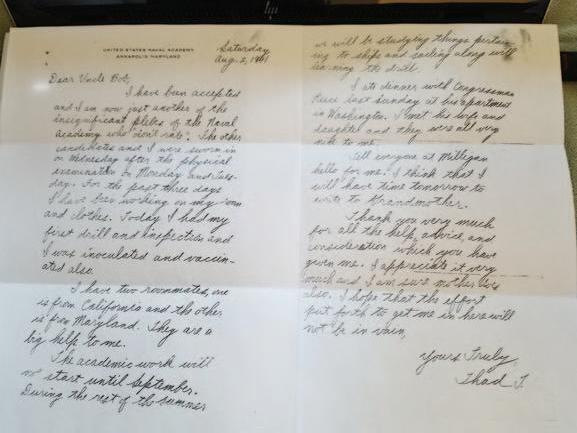 UNITED STATES NAVAL ACADEMY
ANNAPOLIS MARYLAND
Saturday
Aug. 2, 1941
Dear Uncle Bob,
I have been accepted
and I am now just another of the
insignificant plebes of the Naval
Academy who "don't rate". The other
candidates and I were sworn in
on Wednesday after the physical
examination on Monday and Tues-
day. For the past three days
I have been working on my room
and clothes. Today I had my
first drill and inspection and
I was inoculated and vaccin-
ated also.
I have two roommates, one
is from California and the other
is from Maryland. They are a
big help to me.
The academic work will
not start until September.
During the rest of the summer
we will be studying things pertain-
ing to ships and sailing along with
learning the drill.
I ate dinner with Congressman
Reece last Sunday at his apartment
in Washington. I met his wife and
daughter and they were all very
nice to me.
Tell everyone at Milligan
hello for me. I think that I
will have time tomorrow to
write to Grandmother.
Thank you very much
for all the help, advice, and
consideration which you have
given me. I appreciate it very
much and I am sure mother does
also. I hope that the effort
put forth to get me in here will
not be in vain.
Yours Truly
Thad T.